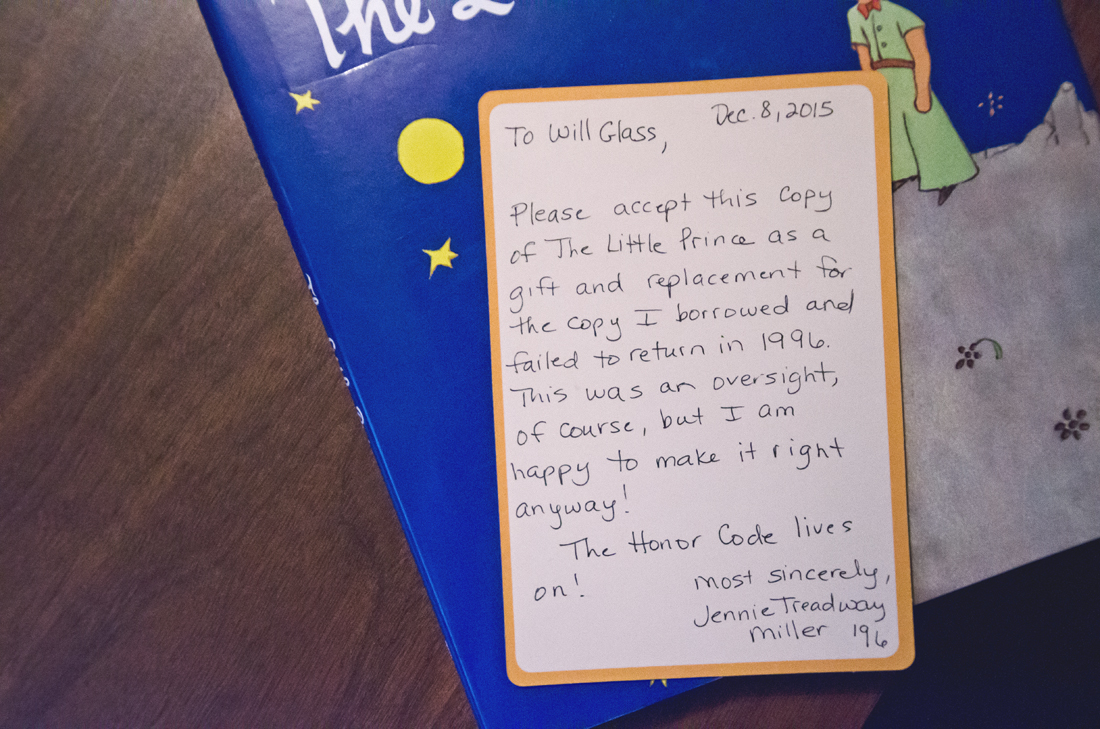 The
Dec. 8, 2015
To Will Glass,
Please accept this copy
of The Little Prince as a
gift and replacement for
the copy I borrowed and
failed to return in 1996.
This was an oversight,
of course, but I am
happy to make it right
anyway!
The Honor Code lives
on!
most sincerely,
Jennie Treadway
Miller '96